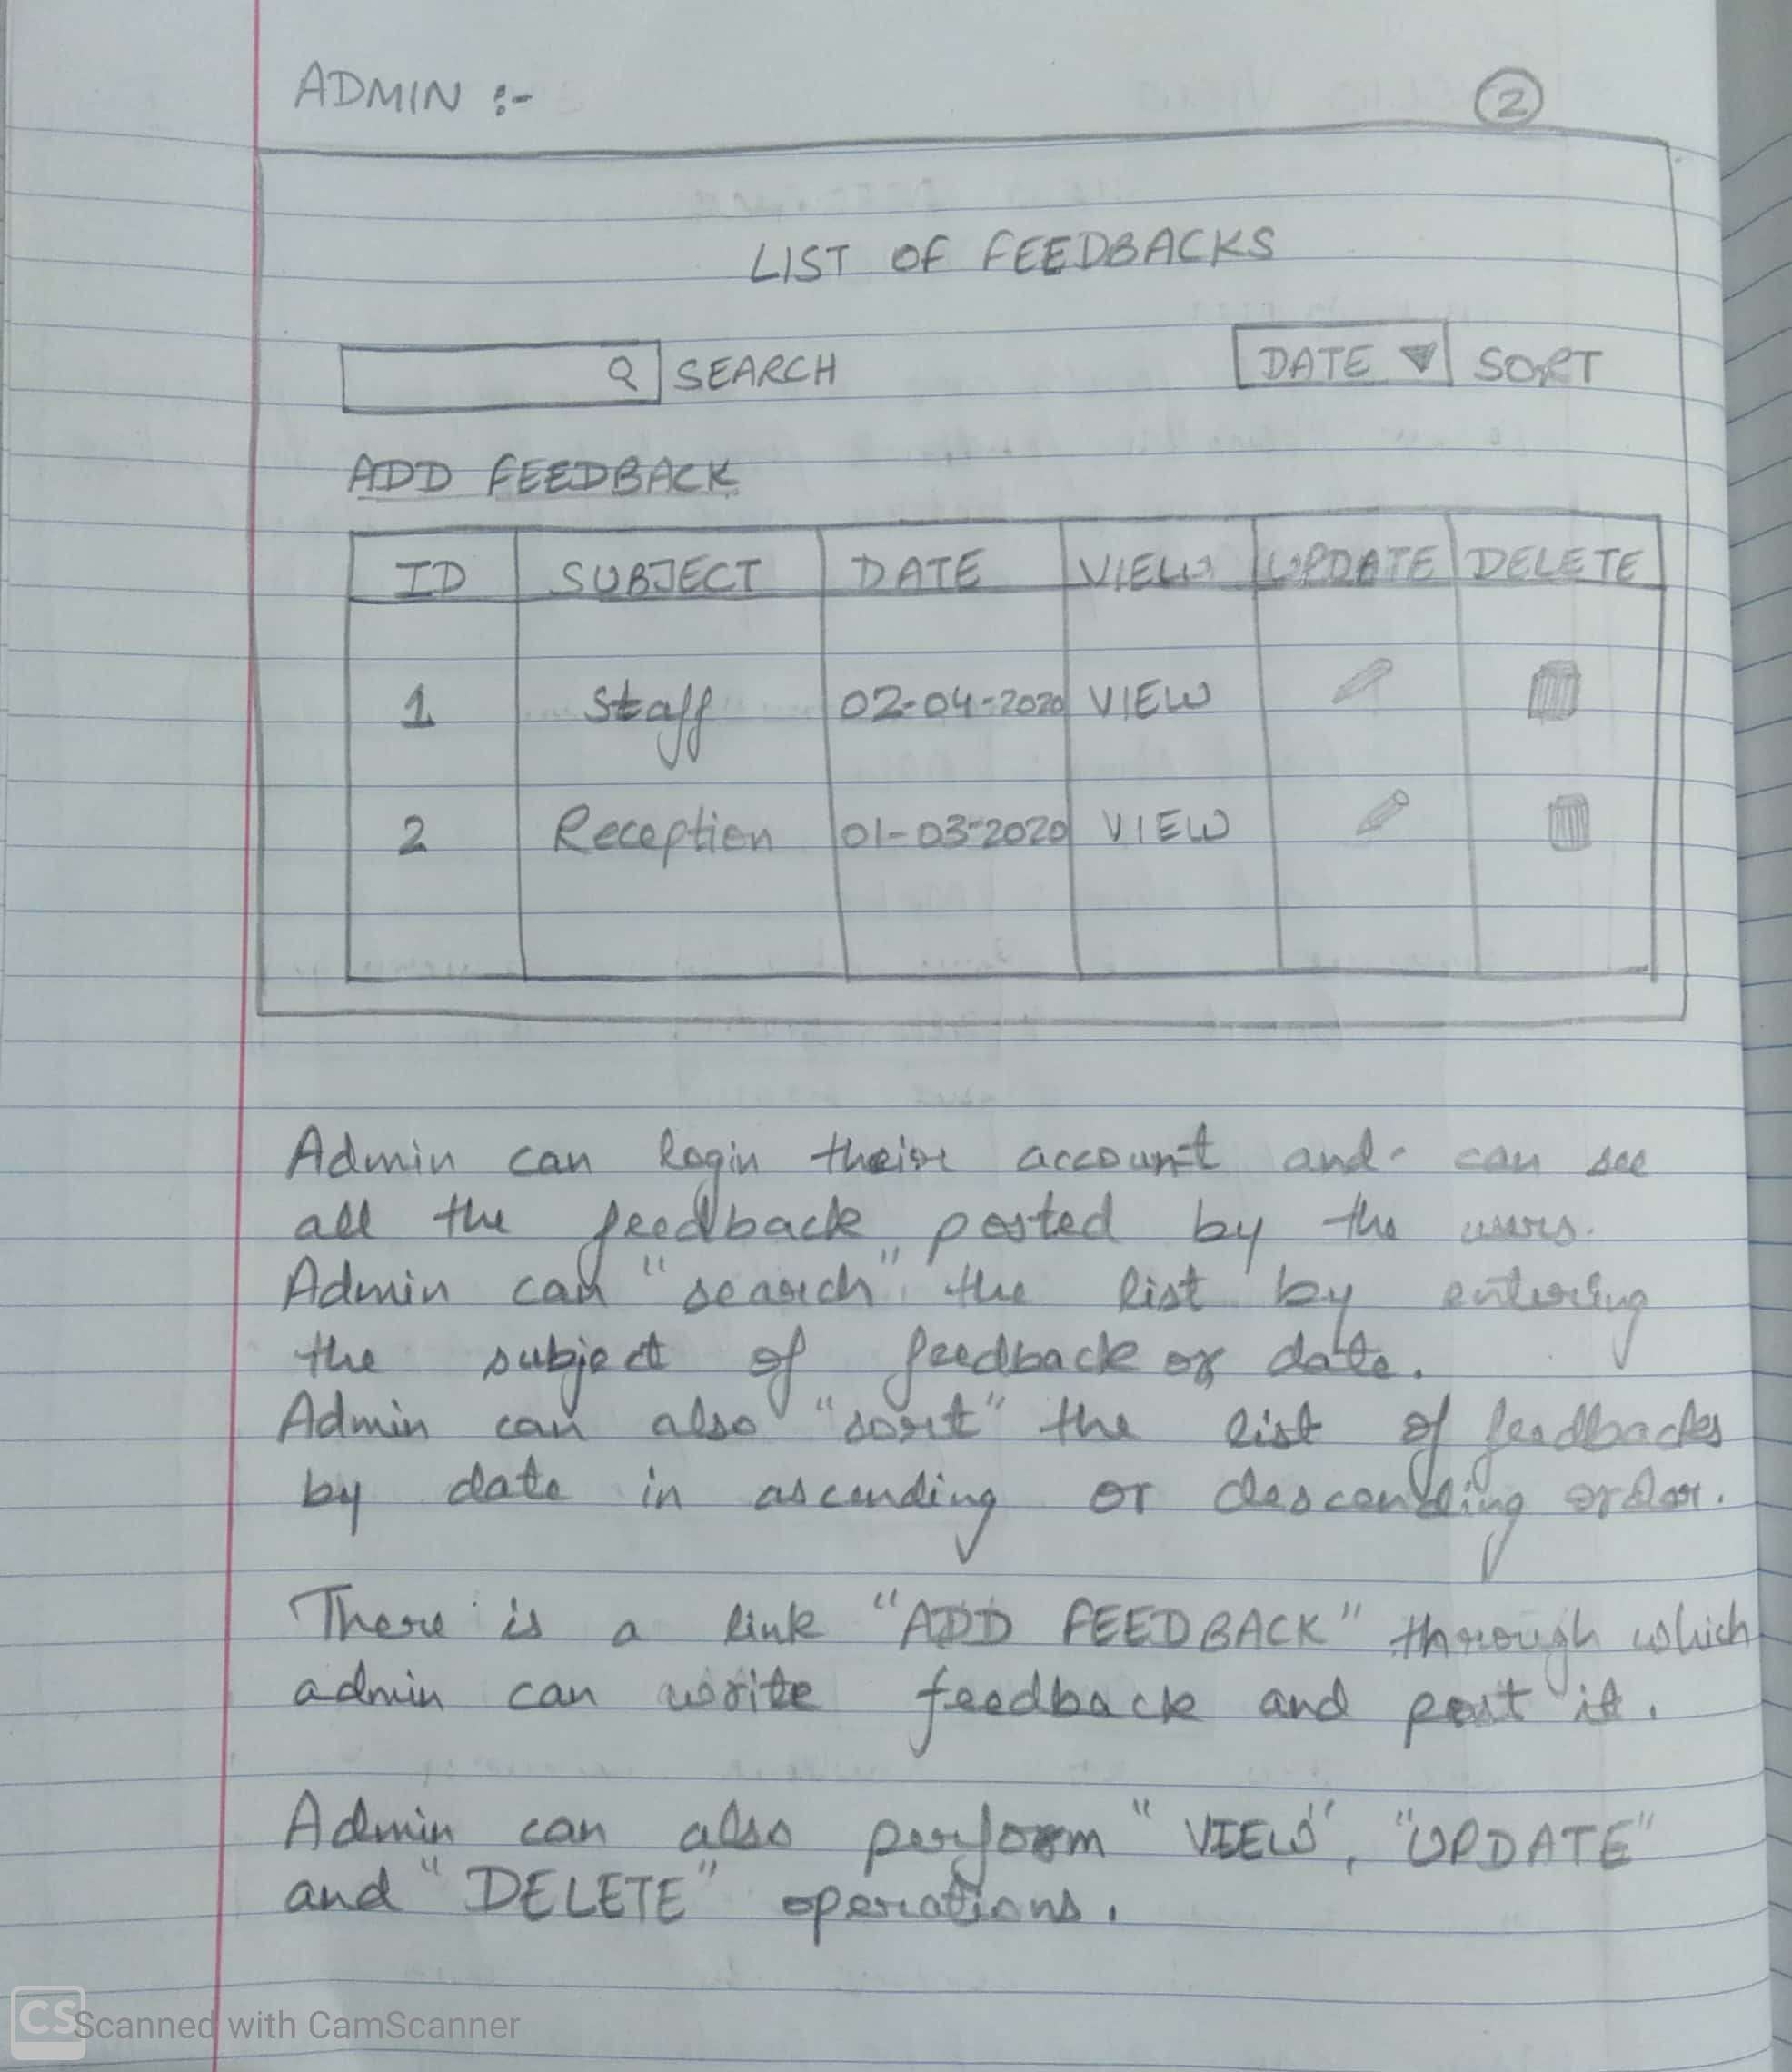 ADMIN :-
2
LIST OF FEEDBACKS
SEARCH DATE SORT
ADD FEEDBACK
ID SUBJECT DATE VIEW UPDATE DELETE
1 Staff 02-04-2020 VIEW
2 Reception 01-03-2020 VIEW
Admin can login their account and can see
all the feedback posted by the users.
Admin can "search" the list by entering
the subject of feedback or date.
Admin can also "sort" the list of feedbacks
by date in ascending or descending order.
There is a link "ADD FEEDBACK" through which
admin can write feedback and post it.
Admin can also perform "VIEW", "UPDATE"
and "DELETE" operations.
CS Scanned with CamScanner